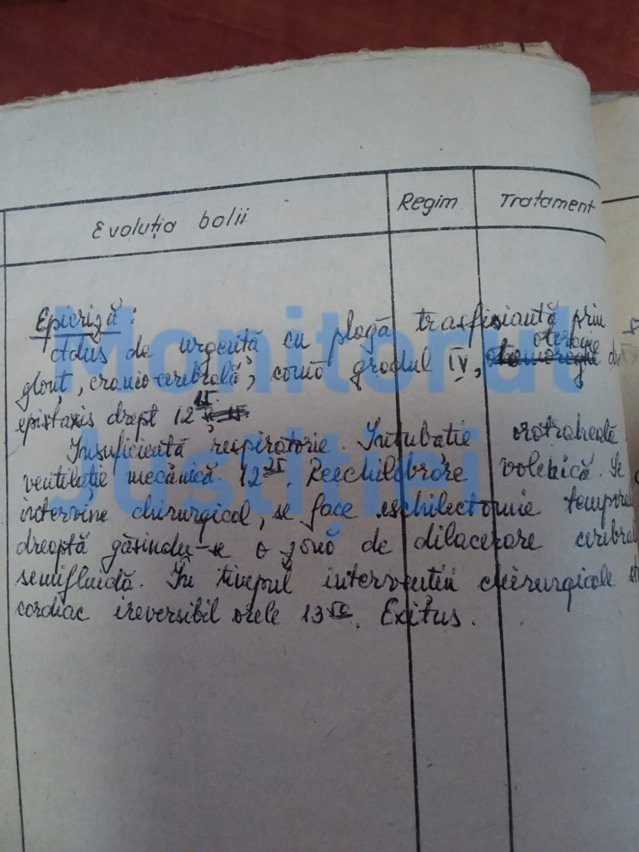 Evoluția bolii Regim Tratament
Epicriză:
Adus de urgență cu plagă trasfixiantă prin
otoragie
glonț, cranio-cerebrală, comă gradul IV, de
epistaxis drept 12
Insuficientă respiratorie. Intubatie orotraheală
ventilație mecanică 12 25. Reechilibrare volemică. Se
intervine chirurgical, se face eschilectomie tempora
dreaptă găsindu-se o zonă de dilacerare cerebra
semifluidă. In timpul interventiei chirurgicale
cordiac ireversibil orele 13. Exitus.
Monitorul
Justiției